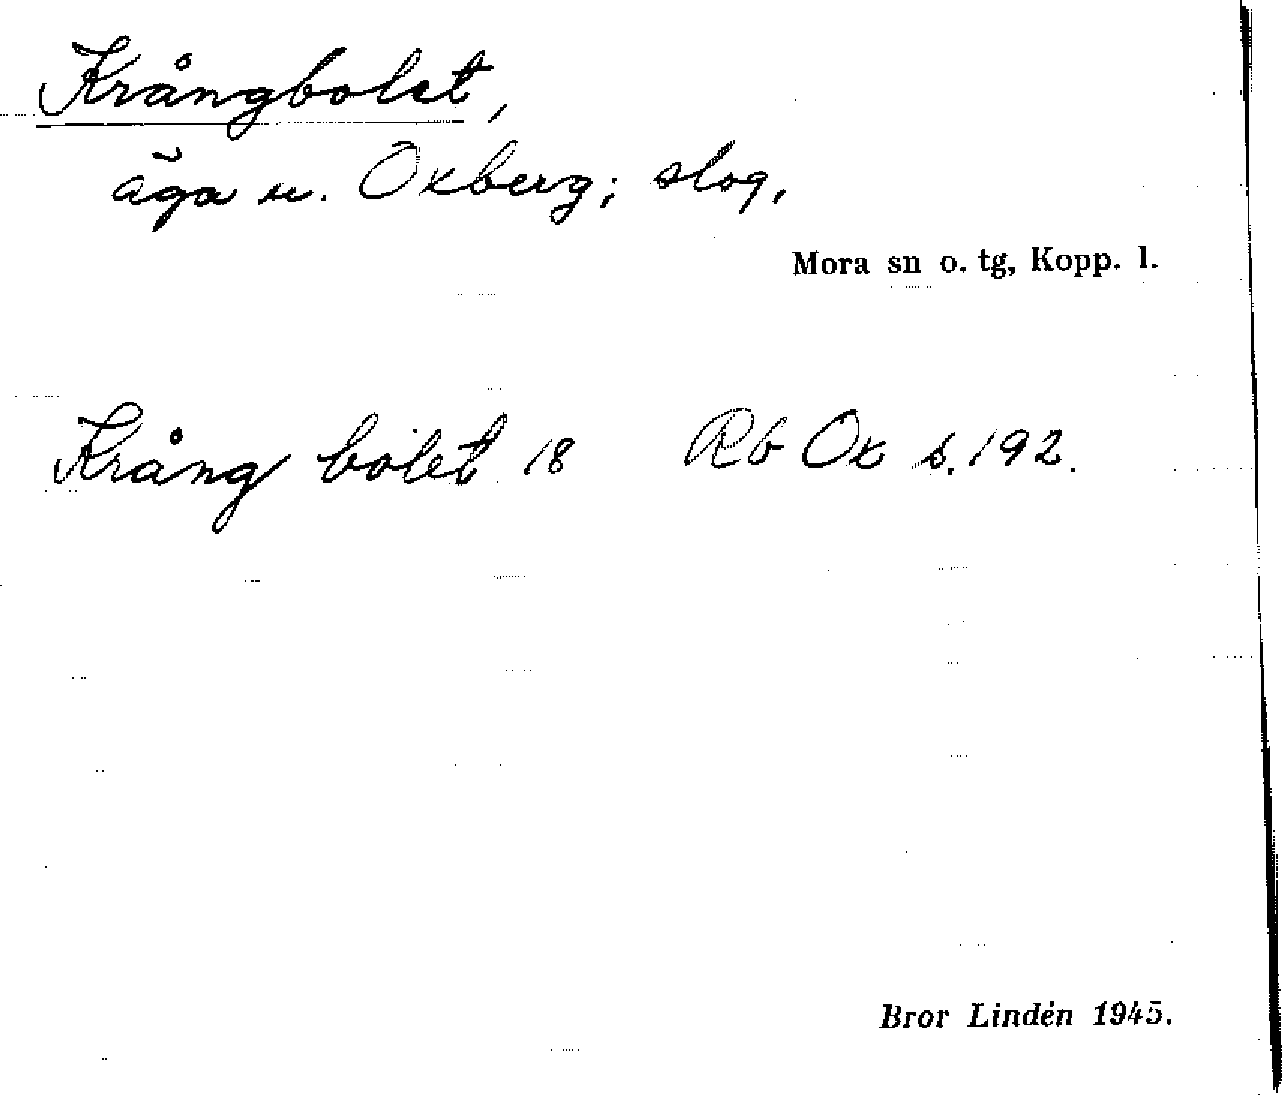 Krångbolet,
äga u. Oxberg; slog.
Mora sn o. tg, Kopp. l.
Krång bolet 18 Rb Ox s. 192.
Bror Lindén 1945.